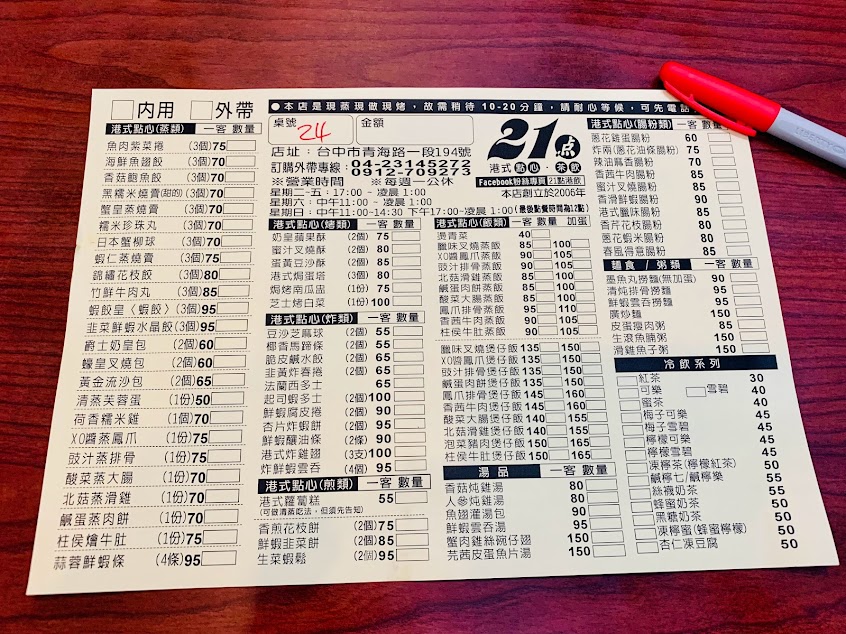 □內用 □外帶
●本店是現蒸現做現烤，故需稍待 10-20分鐘，請耐心等候，可先電話
桌號 24
金額
21点
港式點心·茶飲
店址：台中市青海路一段194號
訂購外帶專線：04-23145272
0912-709273
Facebook粉絲專頁 21點港飲
本店創立於2006年
※營業時間 ※每週一公休
星期二~五：17:00~凌晨 1:00
星期六：中午11:00 ~ 凌晨 1:00
星期日：中午11:00-14:30 下午17:00~凌晨 1:00(最後點餐時間為12點)
港式點心(蒸類) 一客 數量
魚肉紫菜捲 (3個) 75
海鮮魚翅餃 (3個) 70
香菇鮑魚餃 (3個) 70
黑糯米燒賣(甜的) (3個) 70
蟹皇蒸燒賣 (3個) 70
糯米珍珠丸 (3個) 70
日本蟹柳球 (3個) 70
蝦仁蒸燒賣 (3個) 75
錦繡花枝餃 (3個) 80
竹鮮牛肉丸 (3個) 85
蝦餃皇〈蝦餃〉 (3個) 95
韭菜鮮蝦水晶餃 (3個) 95
爵士奶皇包 (2個) 60
蠔皇叉燒包 (2個) 60
黃金流沙包 (2個) 65
清蒸芙蓉蛋 (1個) 50
荷香糯米雞 (1個) 70
XO醬蒸鳳爪 (1份) 75
豉汁蒸排骨 (1份) 75
酸菜蒸大腸 (1份) 70
北菇蒸滑雞 (1份) 70
鹹蛋蒸肉餅 (1份) 70
柱侯燴牛肚 (1份) 75
蒜蓉鮮蝦條 (4條) 95
港式點心(烤類) 一客 數量
奶皇蘋果酥 (2個) 75
蜜汁叉燒酥 (2個) 80
蛋黃豆沙酥 (2個) 85
港式焗蛋塔 (3個) 80
焗烤南瓜盅 (1份) 75
芝士烤白菜 (1份) 100
港式點心(炸類) 一客 數量
豆沙芝麻球 (2個) 55
椰香馬蹄條 (2個) 55
脆皮鹹水餃 (2個) 55
韭黃炸春捲 (2個) 65
法蘭西多士 65
起司蝦多士 (2個) 100
鮮蝦腐皮捲 (2個) 90
杏片炸蝦餅 (2個) 90
鮮蝦釀油條 (2條) 90
港式炸雞翅 (3支) 100
炸鮮蝦雲吞 (4個) 95
港式點心(煎類) 一客 數量
港式蘿蔔糕 55
(可做清蒸吃法，但須先告知)
香煎花枝餅 (2個) 75
鮮蝦韭菜餅 (2個) 85
生菜蝦鬆 (2個) 95
港式點心(飯類) 一客 加蛋
燙青菜 40
臘味叉燒蒸飯 85 100
XO醬鳳爪蒸飯 90 105
豉汁排骨蒸飯 90 105
北菇滑雞蒸飯 85 100
鹹蛋肉餅蒸飯 85 100
酸菜大腸蒸飯 85 100
鳳爪排骨蒸飯 95 110
香茜牛肉蒸飯 90 105
柱侯牛肚蒸飯 90 105
臘味叉燒煲仔飯 135 150
XO醬鳳爪煲仔飯 135 150
豉汁排骨煲仔飯 135 150
鹹蛋肉餅煲仔飯 135 150
鳳爪排骨煲仔飯 145 160
香茜牛肉煲仔飯 145 160
酸菜大腸煲仔飯 140 155
北菇滑雞煲仔飯 140 155
泡菜豬肉煲仔飯 150 165
柱侯牛肚煲仔飯 150 165
湯品 一客 數量
香菇炖雞湯 80
人參炖雞湯 80
魚翅灌湯包 90
鮮蝦雲吞湯 90
蟹肉雞絲碗仔翅 150
芫茜皮蛋魚片湯 150
港式點心(腸粉類) 一客 數量
蔥花雞蛋腸粉 60
炸兩(蔥花油條腸粉) 75
辣油麻香腸粉 70
香茜牛肉腸粉 85
蜜汁叉燒腸粉 85
香滑鮮蝦腸粉 90
港式臘味腸粉 85
香芹花枝腸粉 80
蔥花蝦米腸粉 80
春風得意腸粉 85
麵食 / 粥類 一客 數量
墨魚丸撈麵(無加蛋) 90
清炖排骨撈麵 95
鮮蝦雲吞撈麵 95
廣炒麵 150
皮蛋瘦肉粥 85
生滾魚腩粥 150
滑雞魚子粥 150
冷飲系列
紅茶 30
可樂 雪碧 40
蜜茶 40
梅子可樂 45
梅子雪碧 45
檸檬可樂 45
檸檬雪碧 45
凍檸茶(檸檬紅茶) 50
鹹檸七/鹹檸樂 55
絲襪奶茶 55
蜂蜜奶茶 50
黑糖奶茶 50
凍檸蜜(蜂蜜檸檬) 50
杏仁凍豆腐 50